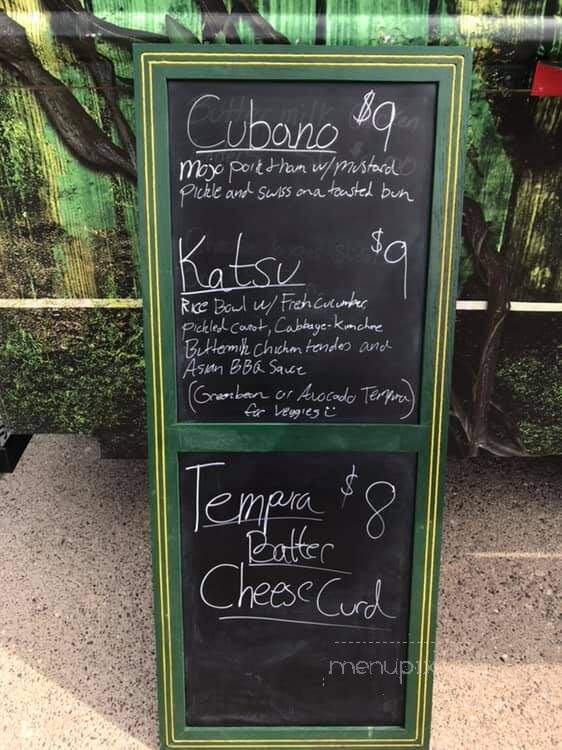 Cubano $9
Mojo pork + ham w/ mustard
Pickle and Swiss on a toasted bun
Katsu $9
Rice Bowl w/ Fresh Cucumber
Pickled Carrot, Cabbage-Kimchee
Buttermilk Chicken tenders and
Asian BBQ Sauce
(Greenbean or Avocado Tempura
for veggies ü)
Tempura $8
Batter
Cheese Curd
menupix